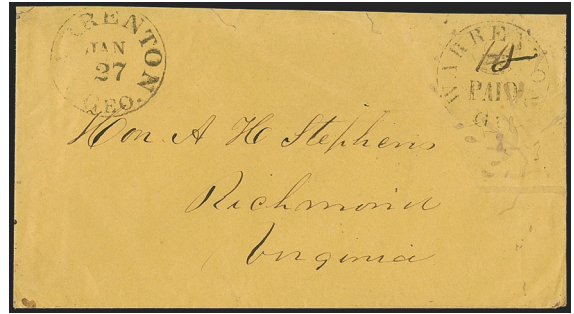 WARRENTON
JAN
27
GEO.
WARRENTON
10
PAID
Hon A H Stephens
Richmond
Virginia